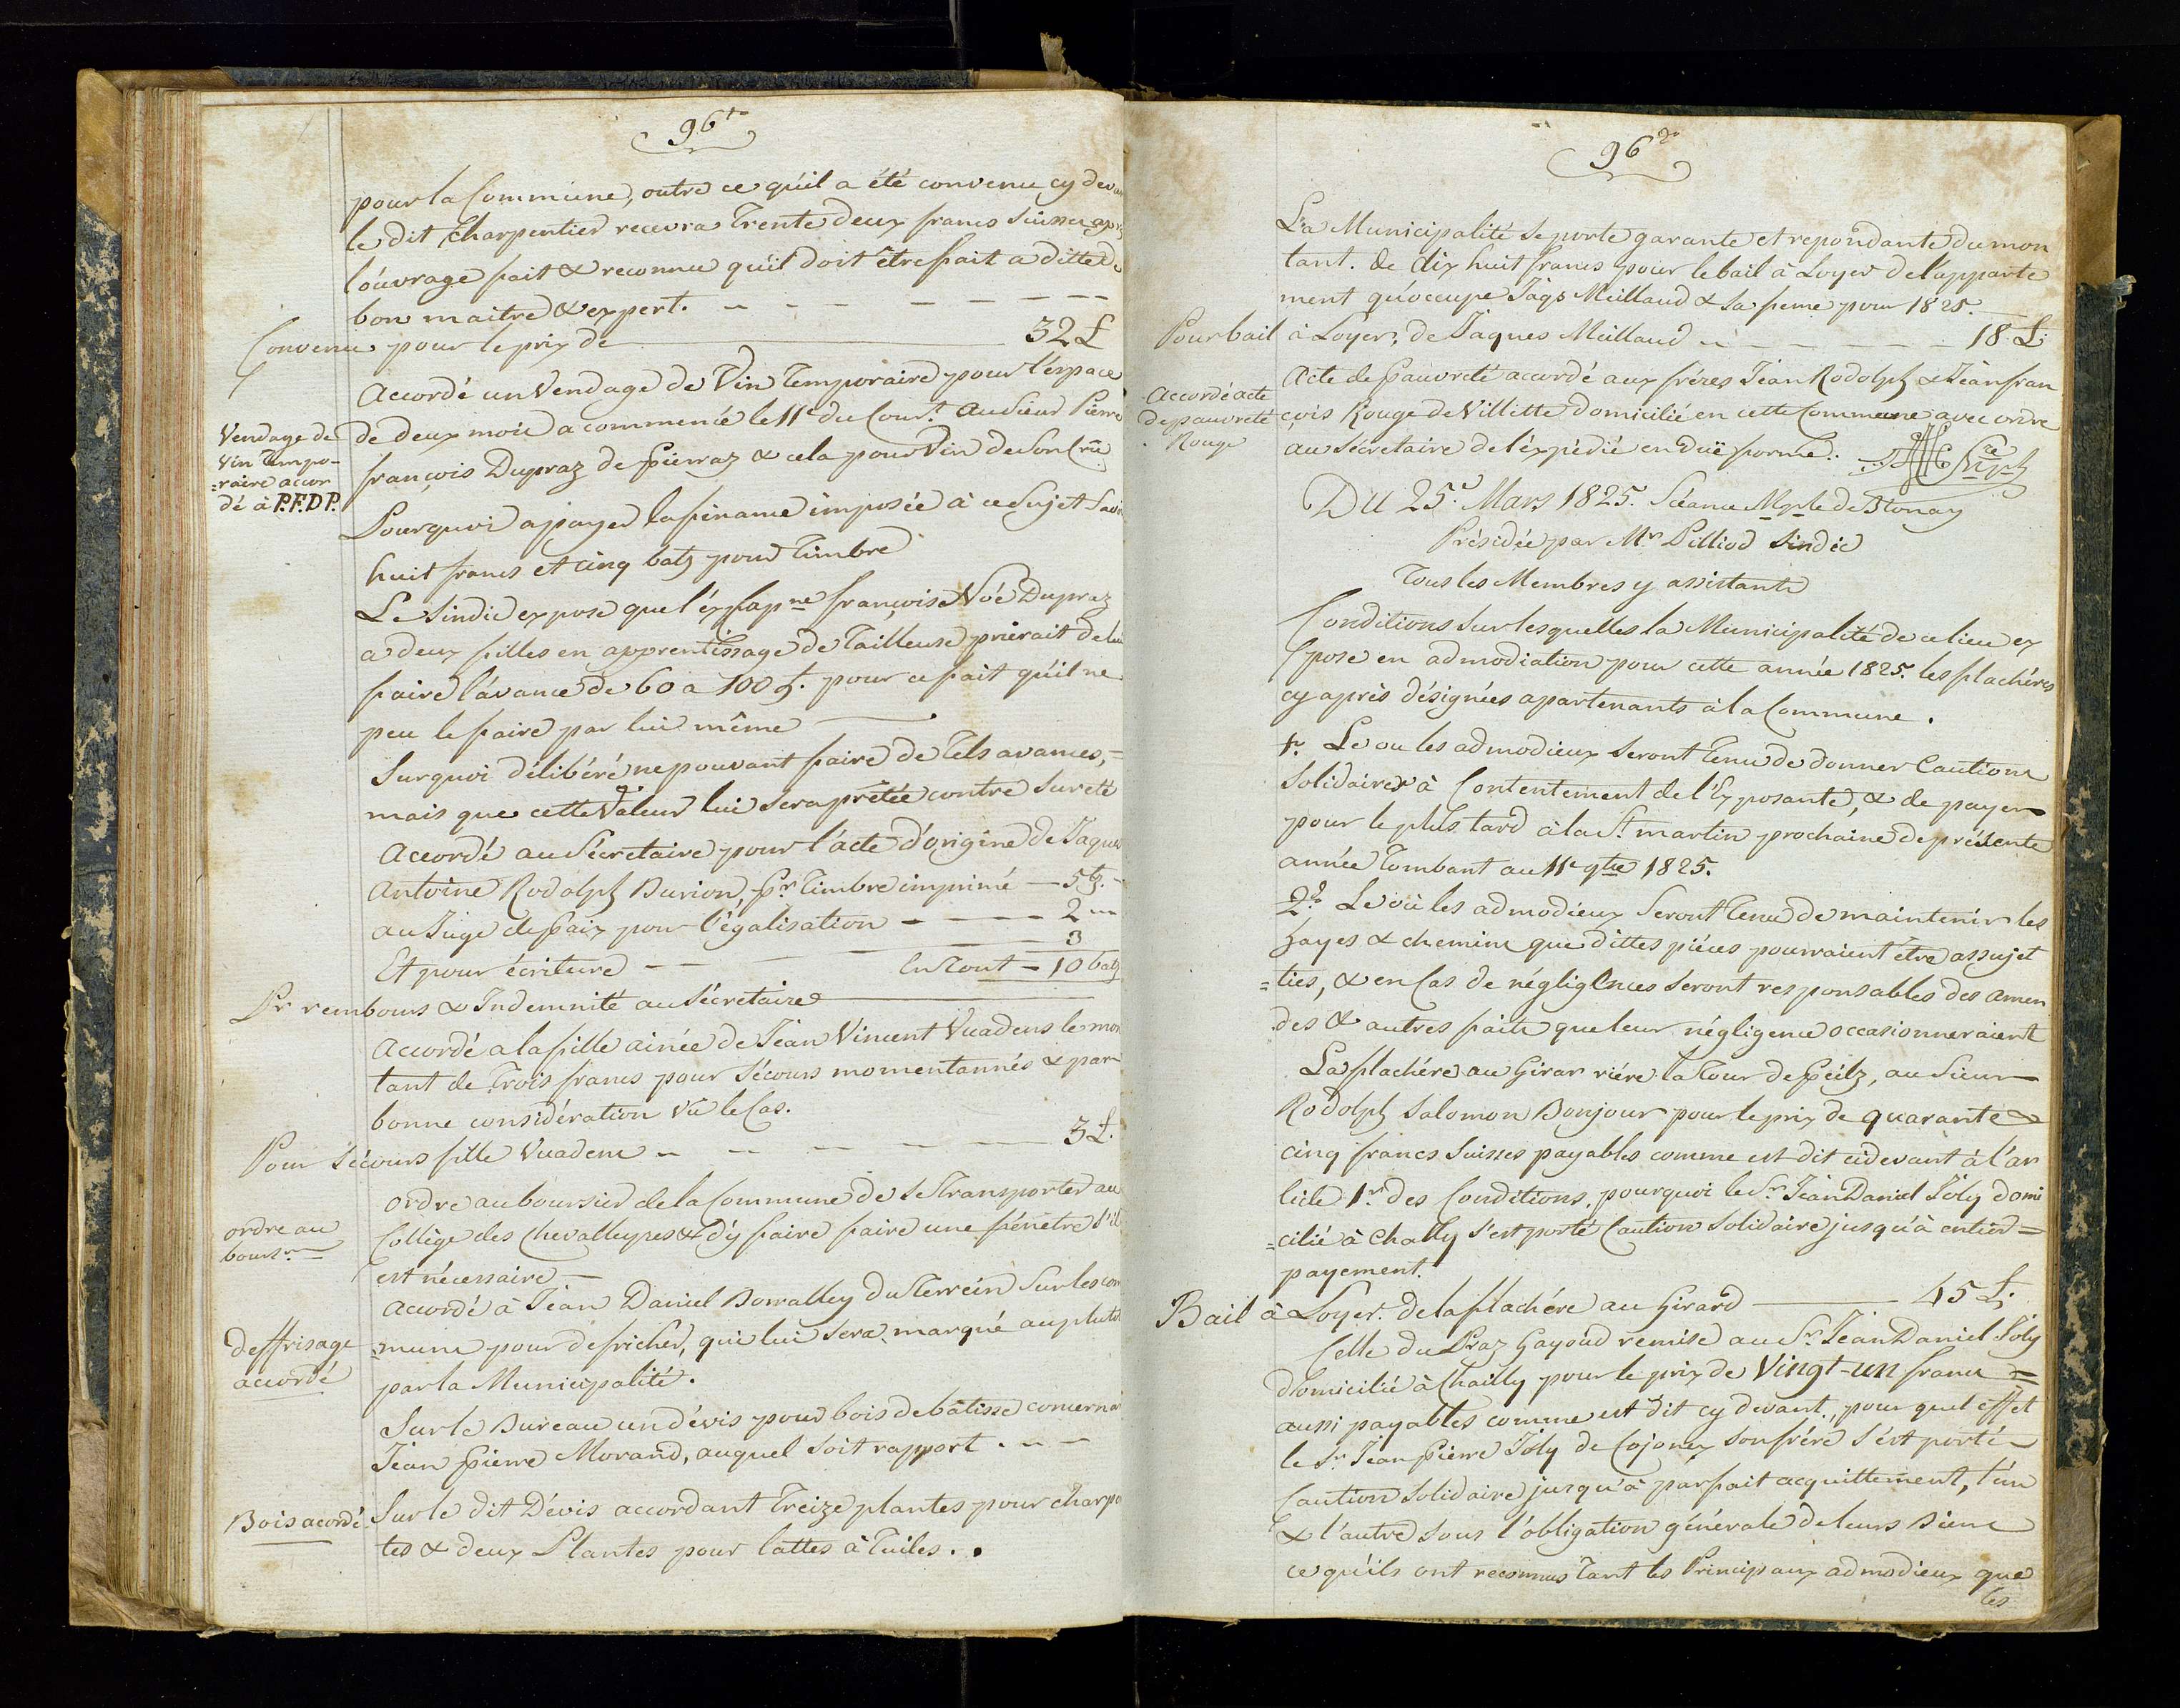 96to
pour la Commune, outre ce qu'il a été convenu cy devan
le dit Charpentier recevra Trente deux francs Suisses apr
l'ouvrage fait & reconnu qu'il doit être fait a ditte de
bon maitre & expert. — — — — — — —
Convenu pour le prix de — 32 £
Accordé un Vendage de Vin Temporaire pour l'éspace
Vendage de
Vin Tempo-
=raire accor
dé à P.F.D P.
de deux mois a commencé le 11e du Cour.t au Sieur Pierre
françois Dupraz de Pierraz & cela pour Vin de Son Crû
Pourquoi a payer la finance imposée à ce Sujet Savoi
huit francs et cinq batz pour Timbre
Le Sindic expose que l'éx Cap.ne françoise Vve Dupraz
a deux filles en apprentissage de Tailleuse prierait de lui
faire l'avance de 60 a 100 f. pour ce fait qu'il ne
peu le faire par lui même
Surquoi délibéré ne pouvant faire de Tels avances,=
mais que cette Valeur lui sera prêtée contre Sureté
Accordé au Sécretaire pour l'acte d'origine de Jaques
Antoine Rodolph Burion, Pr Timbre imprimé — 5 tz. -
au Juge de Paix pour l'égalisation - — — — 2 "
Et pour écriture — — — 3
En Tout — 10 batz
Pr rembours & Indemnité au Sécretaire
Accordé a la fille ainée de Jean Vincent Vuadens le mon
tant de Trois francs pour Sécours momentannés & par
bonne considération vû le Cas.
Pour Sécours fille Vuadens — — — — 3 £.
ordre au
boursr
ordre au boursier de la Commune de Se Transporter au
Collège des Chevalleyres & d'y faire faire une fénetre s'il
est nécessaire —
Deffrisage
accordé
Accordé à Jean Daniel Bovalley du Terrein Sur les com
=mune pour defricher, qui lui sera marqué au plutot
par la Municipalité.
Sur le Bureau un dévis pour bois de bâtisse concernan
Jean Pierre Morand, auquel Soit rapport. — —
Bois acordé
Sur le dit Dévis accordant Treize plantes pour charpe
tes & deux Plantes pour lattes à Tuiles. .
96do
La Municipalité se porte garante et repondante du mon
tant. de dix huit francs pour le bail à Loyer de l'apparte
ment qu'occupe Jaqs Meillaud & sa feme pour 1825.
Pour bail à Loyer, de Jaques Meillaud — — — — 18 £.
Accordé acte
de pauvreté
Rouge
Acte de Pauvreté accordé aux fréres Jean Rodolph & Jean fran
çois Rouge de Villette domicilié en cette Commune avec ordre
au Sécretaire de l'éxpédié en duë forme.
Du 25e Mars 1825. Séance Mple de Blonay
Présidée par Mr Pilliod Sindic
Tous les Membres y assistants
Conditions sur lesquelles la Municipalité de ce lieu ex
pose en admodiation pour cette année 1825. les flachéres
cy après désignées apartenants à la Commune.
1o. Le ou les admodieux Seront Tenu de donner Cautions
Solidaires à Contentement de l'Exposante, & de payer
pour le plus tard à la St. martin prochaine de présente
année Tombant au 11e 9bre 1825.
2o. Le ou les admodieux Seront Tenu de maintenir les
hayes & chemins que dittes piéces pourraient être assujet
=ties, & en Cas de négligences seront responsables des amen
des & autres faits que leur négligence occasionneraient
La flachére au Girar riére la Tour de Peilz, au Sieur
Rodolph Salomon Bonjour pour le prix de quarante &
cinq francs Suisses payables comme est dit cidevant à l'ar
ticle 1er des Conditions, pourquoi le Sr Jean Daniel Joly domi
=cilié à Chailly s'est porté Caution Solidaire jusqu'à entier=
payement.
Bail à Loyer. de la flachére au Girard — 45 £.
Celle du Praz Gayoud remise au Sr Jean Daniel Joly
domicilié à Chailly pour le prix de Vingt-un francs =
aussi payables comme est dit cy devant, pour quel effet
le Sr Jean Pierre Joly de Cojonex son frére s'est porté
Caution Solidaire jusqu'à parfait acquittement, l'un
& l'autre sous l'obligation générale de leurs Biens
ce qu'ils ont reconnus Tant les Principaux admodieux que
les